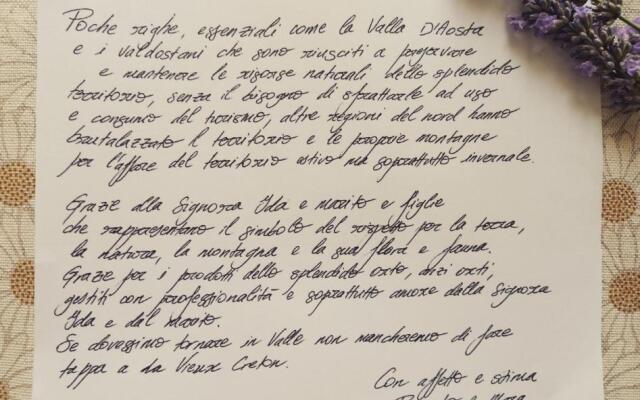 Poche righe, essenziali come la Valla D'Aosta
e i valdostani che sono riusciti a preservare
e mantenere le risorse naturali dello splendido
territorio, senza il bisogno di sfruttarle ad uso
e consumo del turismo, altre regioni del nord hanno
brutalazzato il territorio e le proprie montagne
per l'affare del territorio estivo ma soprattutto invernale.
Grazie alla Signora Ida e marito e figlie
che rappresentano il simbolo del rispetto per la terra,
la natura, la montagna e la sua flora e fauna.
Grazie per i prodotti dello splendido orto, anzi orti,
gestiti con professionalità e soprattutto amore dalla Signora
Ida e dal marito.
Se dovessimo tornare in Valle non mancheremo di fare
tappa a da Vieux Creton.
Con affetto e stima